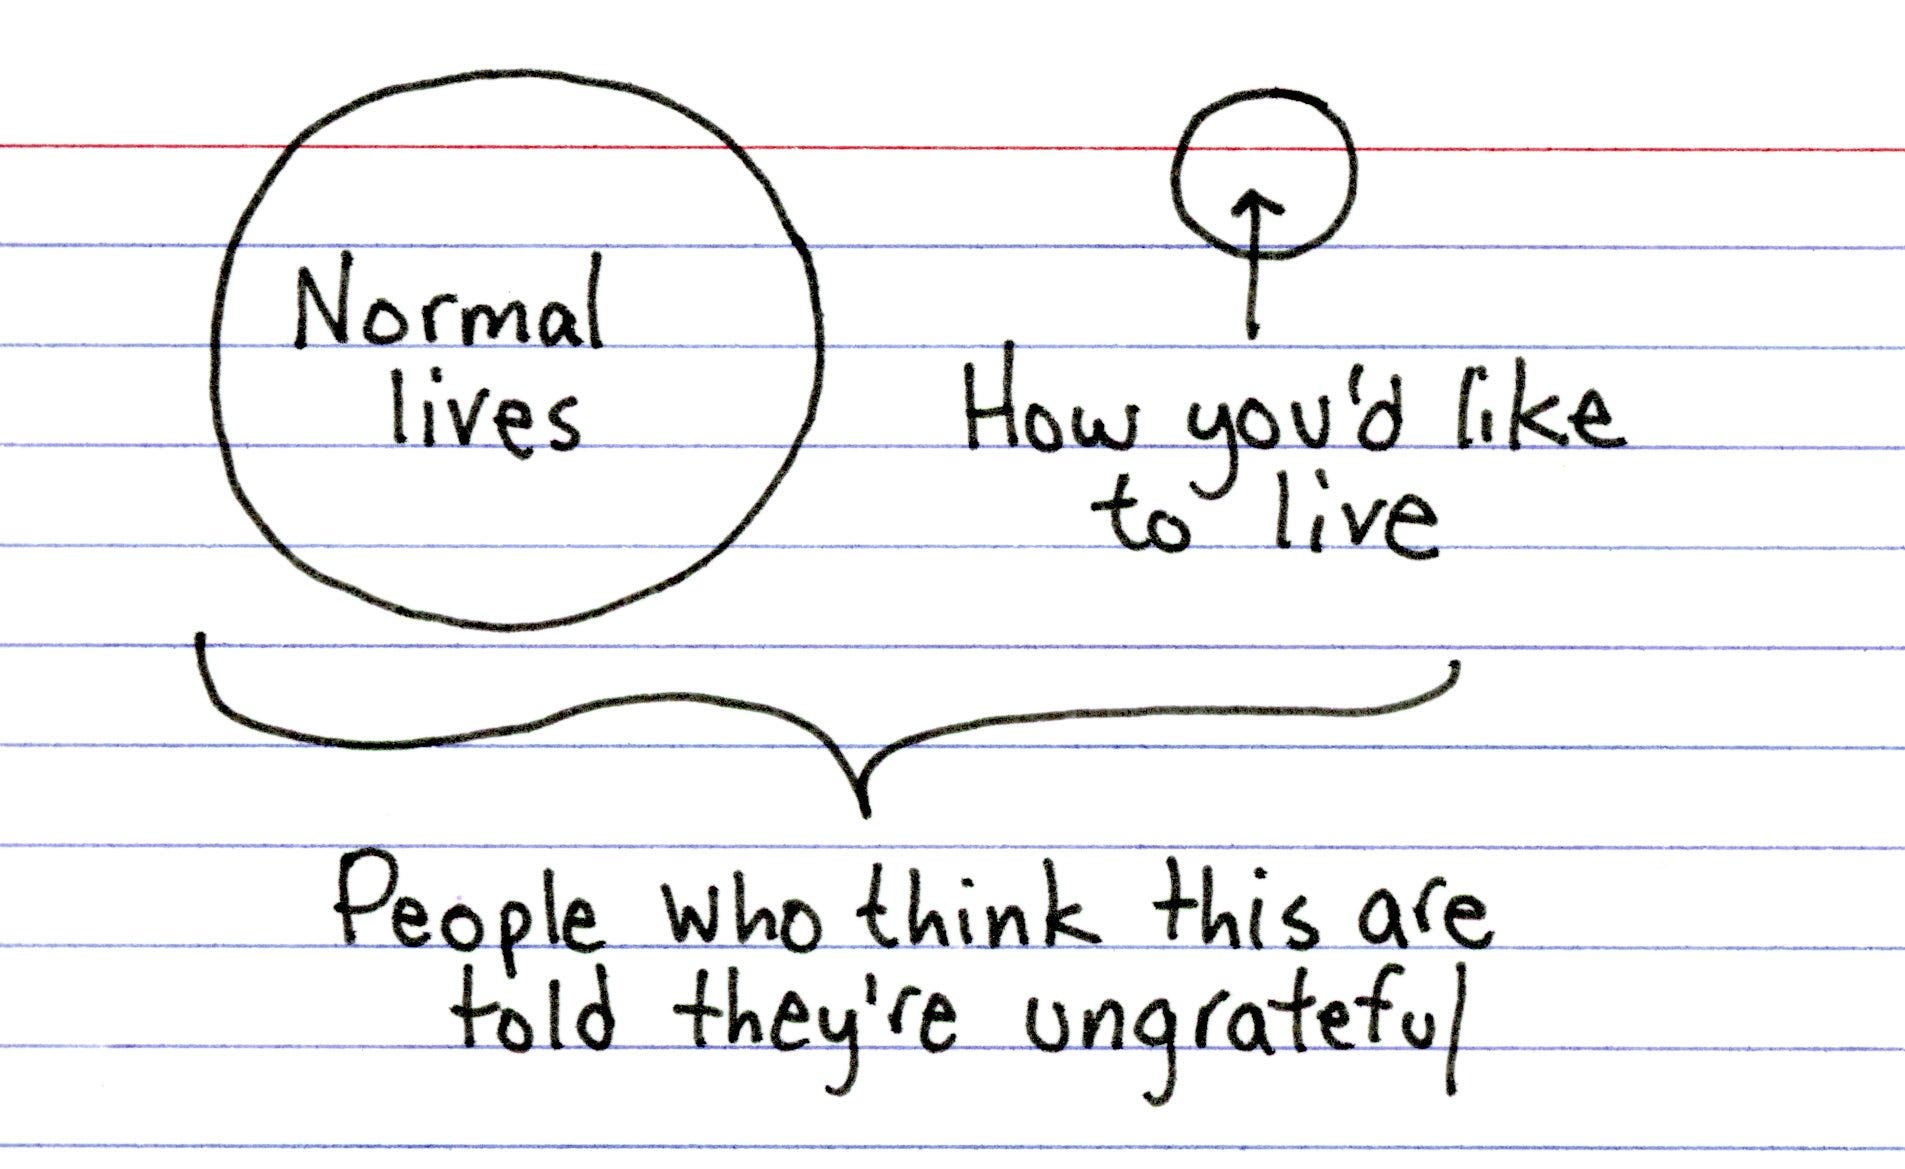 Normal
lives
How you'd like
to live
People who think this are
told they're ungrateful